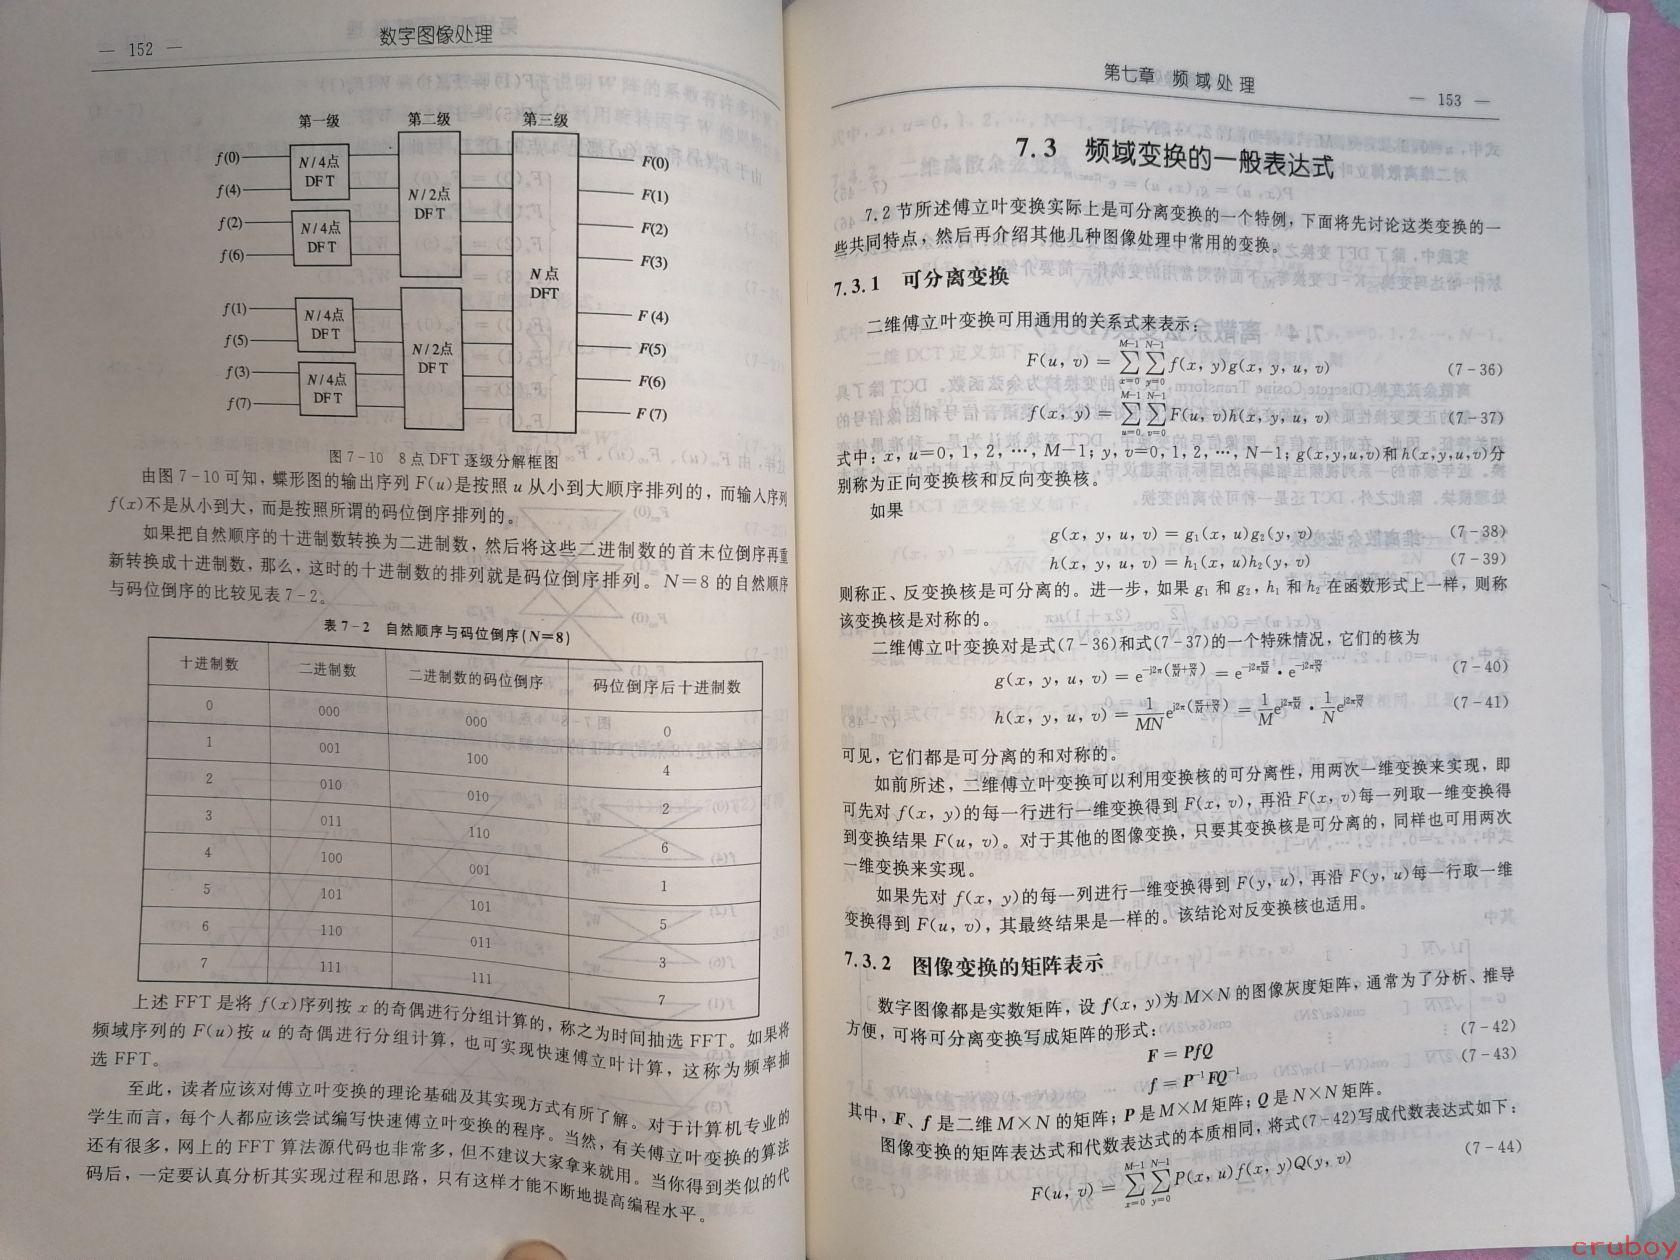 — 152 —
数字图像处理
第一级 第二级 第三级
f(0)
f(4)
f(2)
f(6)
f(1)
f(5)
f(3)
f(7)
N/4点
DFT
N/4点
DFT
N/4点
DFT
N/4点
DFT
N/2点
DFT
N/2点
DFT
N点
DFT
F(0)
F(1)
F(2)
F(3)
F(4)
F(5)
F(6)
F(7)
图 7-10 8点DFT逐级分解框图
由图 7-10 可知，蝶形图的输出序列 F(u)是按照 u 从小到大顺序排列的，而输入序列
f(x)不是从小到大，而是按照所谓的码位倒序排列的。
如果把自然顺序的十进制数转换为二进制数，然后将这些二进制数的首末位倒序再重
新转换成十进制数，那么，这时的十进制数的排列就是码位倒序排列。N=8 的自然顺序
与码位倒序的比较见表 7-2。
表 7-2 自然顺序与码位倒序(N=8)
十进制数 二进制数 二进制数的码位倒序 码位倒序后十进制数
0 000 000 0
1 001 100 4
2 010 010 2
3 011 110 6
4 100 001 1
5 101 101 5
6 110 011 3
7 111 111 7
上述 FFT 是将 f(x)序列按 x 的奇偶进行分组计算的，称之为时间抽选 FFT。如果将
频域序列的 F(u)按 u 的奇偶进行分组计算，也可实现快速傅立叶计算，这称为频率抽
选 FFT。
至此，读者应该对傅立叶变换的理论基础及其实现方式有所了解。对于计算机专业的
学生而言，每个人都应该尝试编写快速傅立叶变换的程序。当然，有关傅立叶变换的算法
还有很多，网上的 FFT 算法源代码也非常多，但不建议大家拿来就用。当你得到类似的代
码后，一定要认真分析其实现过程和思路，只有这样才能不断地提高编程水平。
第七章 频域处理
— 153 —
7.3 频域变换的一般表达式
7.2 节所述傅立叶变换实际上是可分离变换的一个特例，下面将先讨论这类变换的一
些共同特点，然后再介绍其他几种图像处理中常用的变换。
7.3.1 可分离变换
二维傅立叶变换可用通用的关系式来表示：
F(u, v) = ∑_{x=0}^{M-1} ∑_{y=0}^{N-1} f(x, y)g(x, y, u, v) (7-36)
f(x, y) = ∑_{u=0}^{M-1} ∑_{v=0}^{N-1} F(u, v)h(x, y, u, v) (7-37)
式中：x, u=0, 1, 2, …, M-1；y, v=0, 1, 2, …, N-1；g(x,y,u,v)和h(x,y,u,v)分
别称为正向变换核和反向变换核。
如果
g(x, y, u, v) = g₁(x, u)g₂(y, v) (7-38)
h(x, y, u, v) = h₁(x, u)h₂(y, v) (7-39)
则称正、反变换核是可分离的。进一步，如果 g₁ 和 g₂，h₁ 和 h₂ 在函数形式上一样，则称
该变换核是对称的。
二维傅立叶变换对是式(7-36)和式(7-37)的一个特殊情况，它们的核为
g(x, y, u, v) = e^{-j2π(ux/M + vy/N)} = e^{-j2π ux/M} · e^{-j2π vy/N} (7-40)
h(x, y, u, v) = 1/MN e^{j2π(ux/M + vy/N)} = 1/M e^{j2π ux/M} · 1/N e^{j2π vy/N} (7-41)
可见，它们都是可分离的和对称的。
如前所述，二维傅立叶变换可以利用变换核的可分离性，用两次一维变换来实现，即
可先对 f(x, y)的每一行进行一维变换得到 F(x, v)，再沿 F(x, v)每一列取一维变换得
到变换结果 F(u, v)。对于其他的图像变换，只要其变换核是可分离的，同样也可用两次
一维变换来实现。
如果先对 f(x, y)的每一列进行一维变换得到 F(y, u)，再沿 F(y, u)每一行取一维
变换得到 F(u, v)，其最终结果是一样的。该结论对反变换核也适用。
7.3.2 图像变换的矩阵表示
数字图像都是实数矩阵，设 f(x, y)为 M×N 的图像灰度矩阵，通常为了分析、推导
方便，可将可分离变换写成矩阵的形式：
F = PfQ (7-42)
f = P⁻¹FQ⁻¹ (7-43)
其中，F、f 是二维 M×N 的矩阵；P 是 M×M 矩阵；Q 是 N×N 矩阵。
图像变换的矩阵表达式和代数表达式的本质相同，将式(7-42)写成代数表达式如下：
F(u, v) = ∑_{x=0}^{M-1} ∑_{y=0}^{N-1} P(x, u)f(x, y)Q(y, v) (7-44)
cruboy